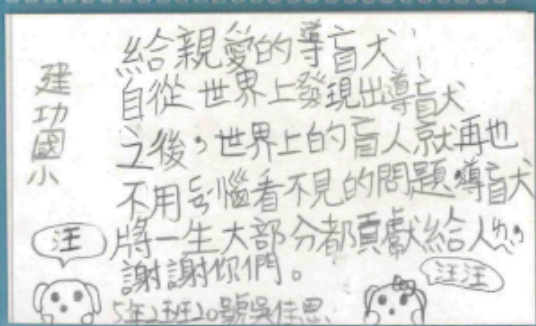 建功國小
給親愛的導盲犬:
自從世界上發現出導盲犬
之後,世界上的盲人就再也
不用苦惱看不見的問題,導盲犬
將一生大部分都貢獻給人類,
謝謝你們。
汪
汪汪
5年2班20號吳佳恩